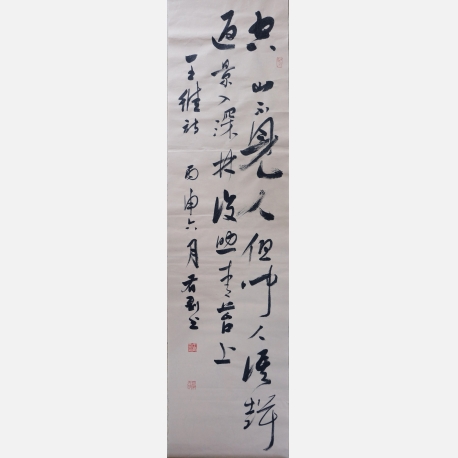 空山不見人但聞人語響
返景入深林復照青苔上
王維詩 丙申六月